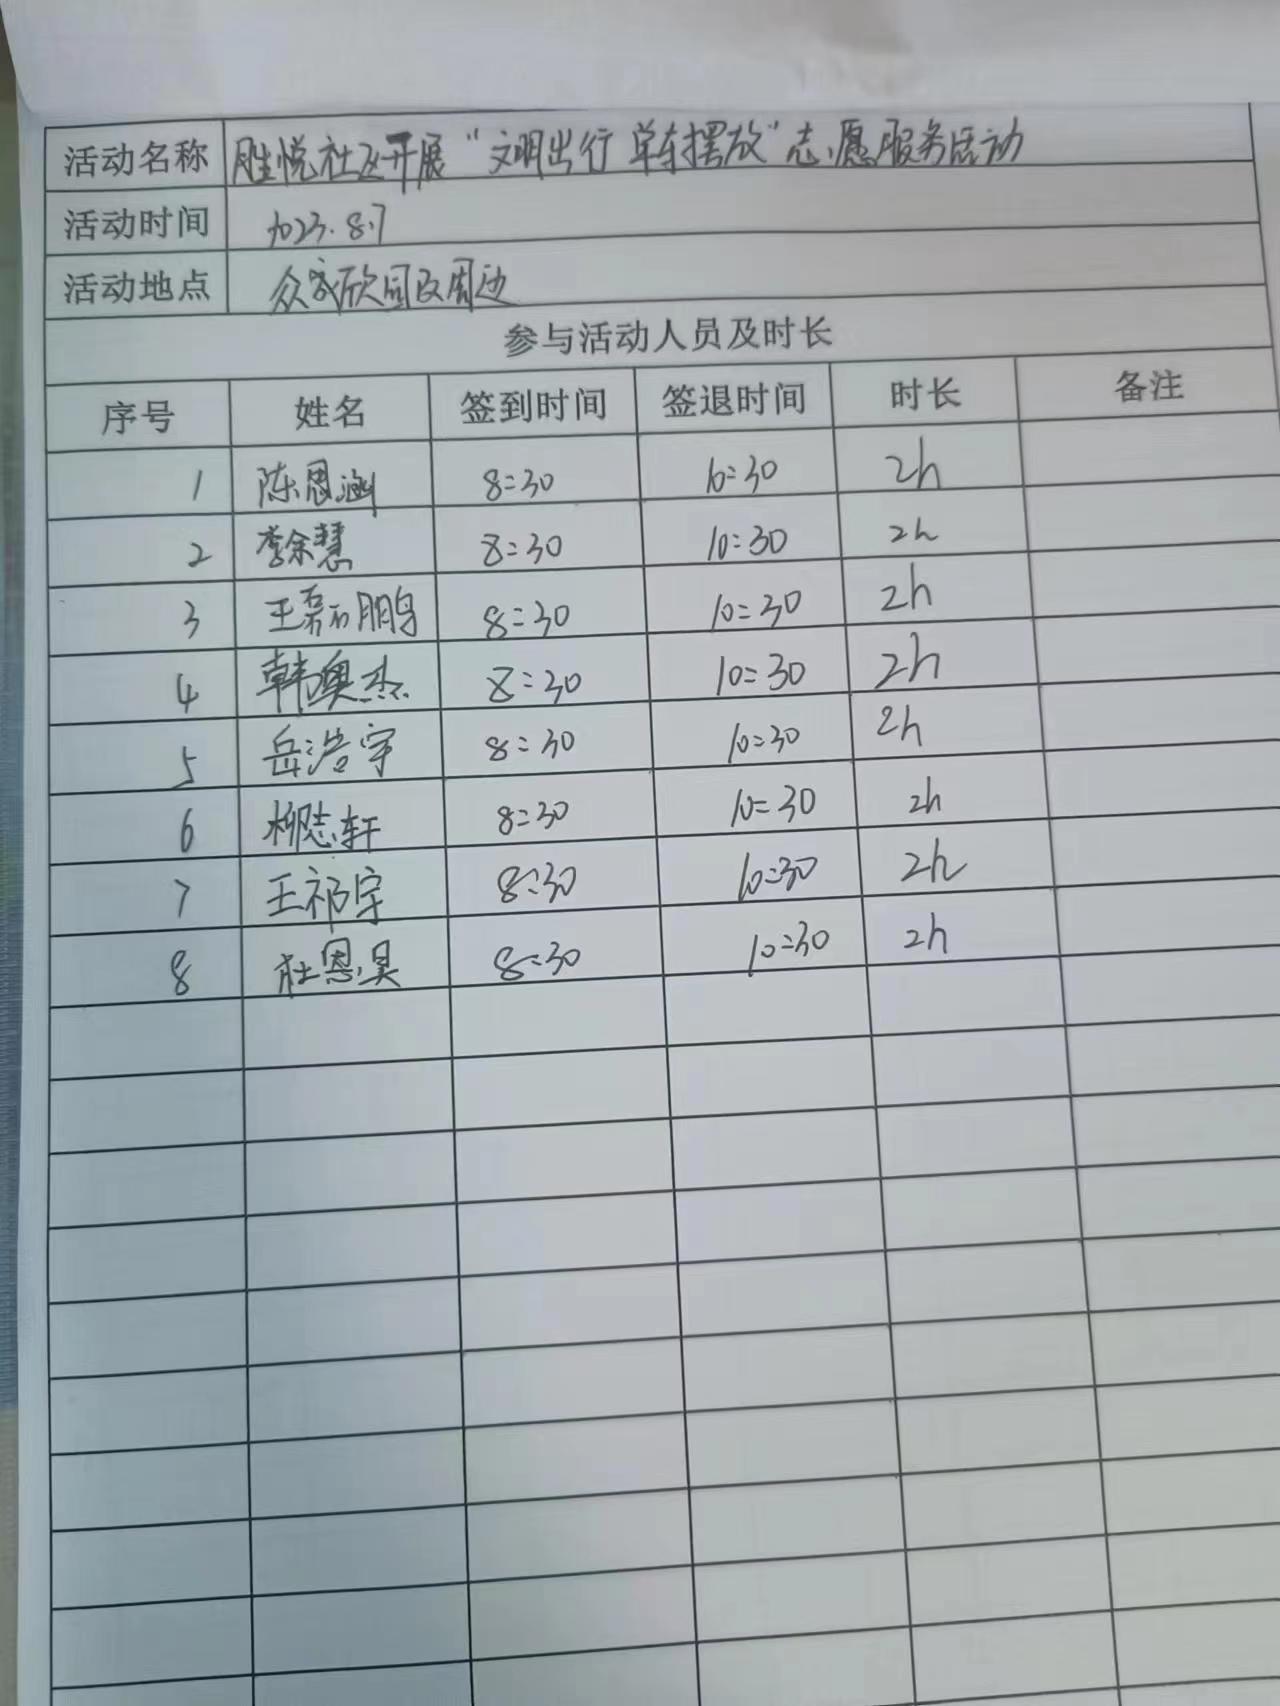 活动名称 胜悦社区开展“文明出行 单车摆放”志愿服务活动
活动时间 2023.8.7
活动地点 众成欣园及周边
参与活动人员及时长
序号 姓名 签到时间 签退时间 时长 备注
1 陈恩涵 8:30 10:30 2h
2 李余慧 8:30 10:30 2h
3 王磊鹏 8:30 10:30 2h
4 韩奥杰 8:30 10:30 2h
5 岳浩宇 8:30 10:30 2h
6 柳志轩 8:30 10:30 2h
7 王祁宇 8:30 10:30 2h
8 杜恩昊 8:30 10:30 2h